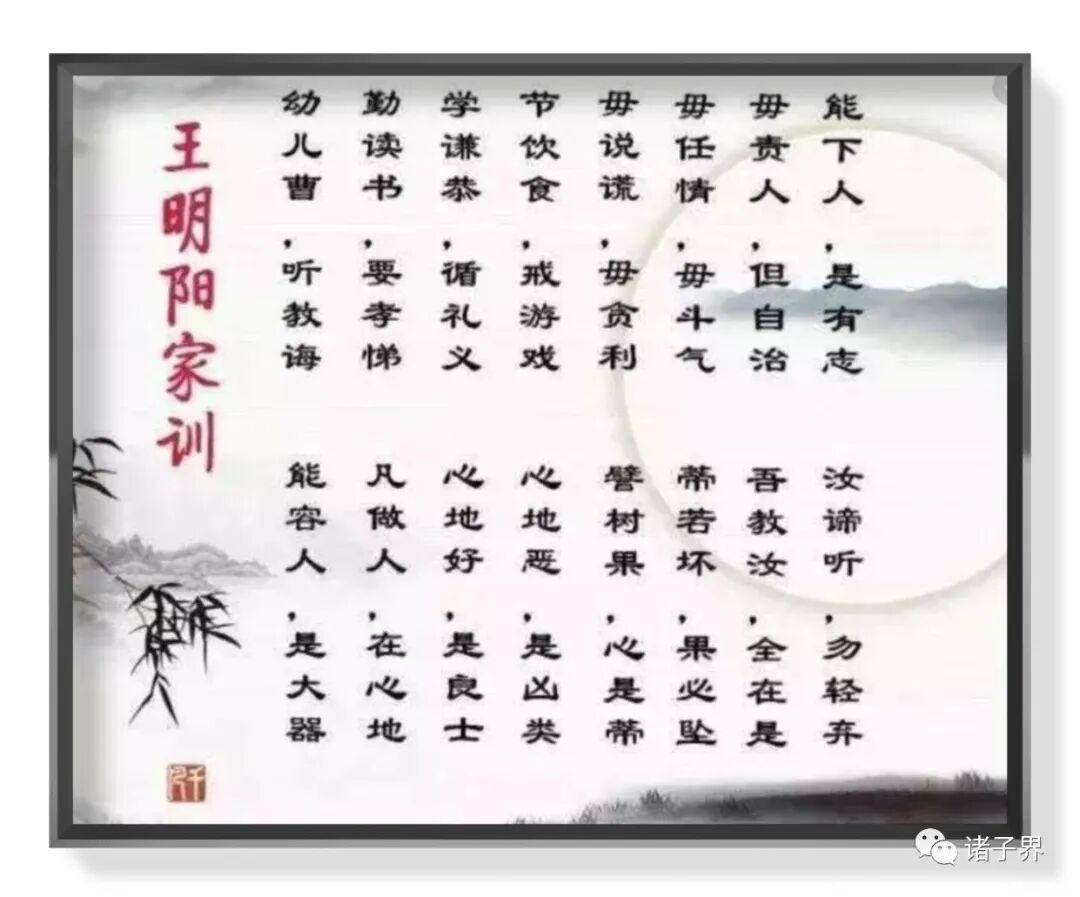 王明阳家训
幼儿曹，听教诲
勤读书，要孝悌
学谦恭，循礼义
节饮食，戒游戏
毋说谎，毋贪利
毋任情，毋斗气
毋责人，但自治
能下人，是有志
能容人，是大器
凡做人，在心地
心地好，是良士
心地恶，是凶类
譬树果，心是蒂
蒂若坏，果必坠
吾教汝，全在是
汝谛听，勿轻弃
诸子界